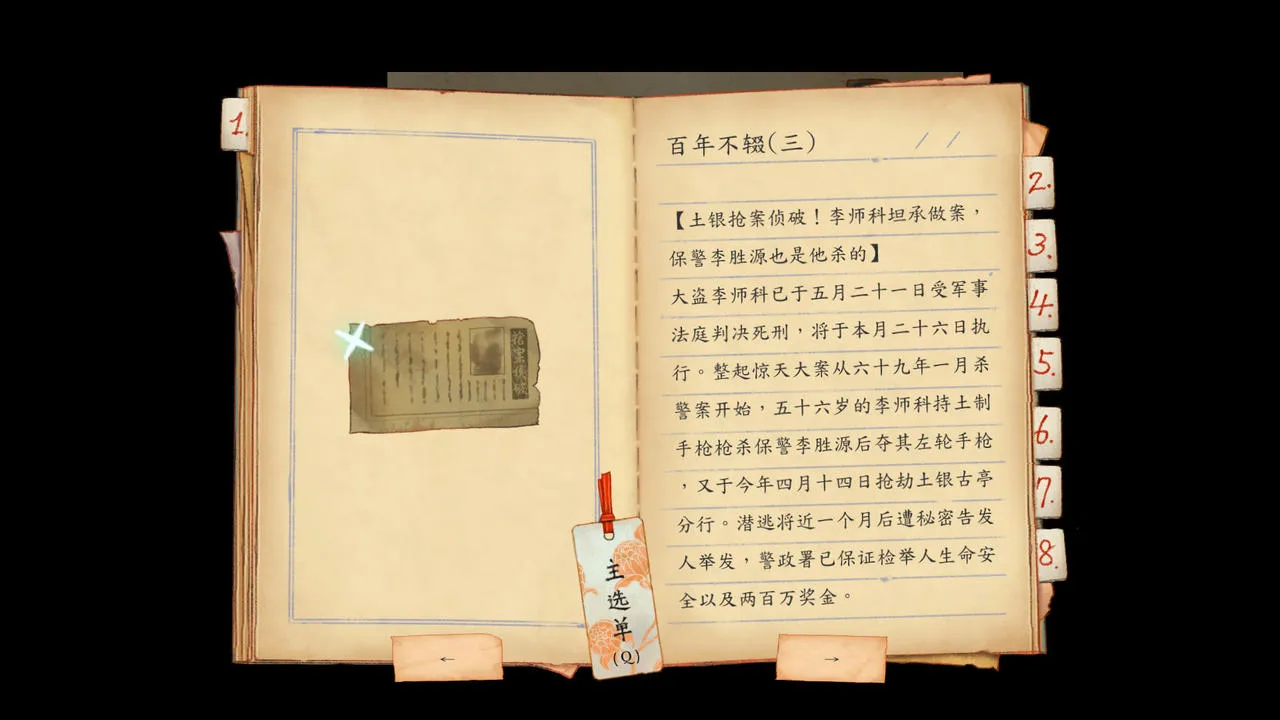 1.
抢案侦破
百年不辍(三)
/ /
【土银抢案侦破！李师科坦承做案，
保警李胜源也是他杀的】
大盗李师科已于五月二十一日受军事
法庭判决死刑，将于本月二十六日执
行。整起惊天大案从六十九年一月杀
警案开始，五十六岁的李师科持土制
手枪枪杀保警李胜源后夺其左轮手枪
，又于今年四月十四日抢劫土银古亭
分行。潜逃将近一个月后遭秘密告发
人举发，警政署已保证检举人生命安
全以及两百万奖金。
2.
3.
4.
5.
6.
7.
8.
主选单
(Q)
←
→